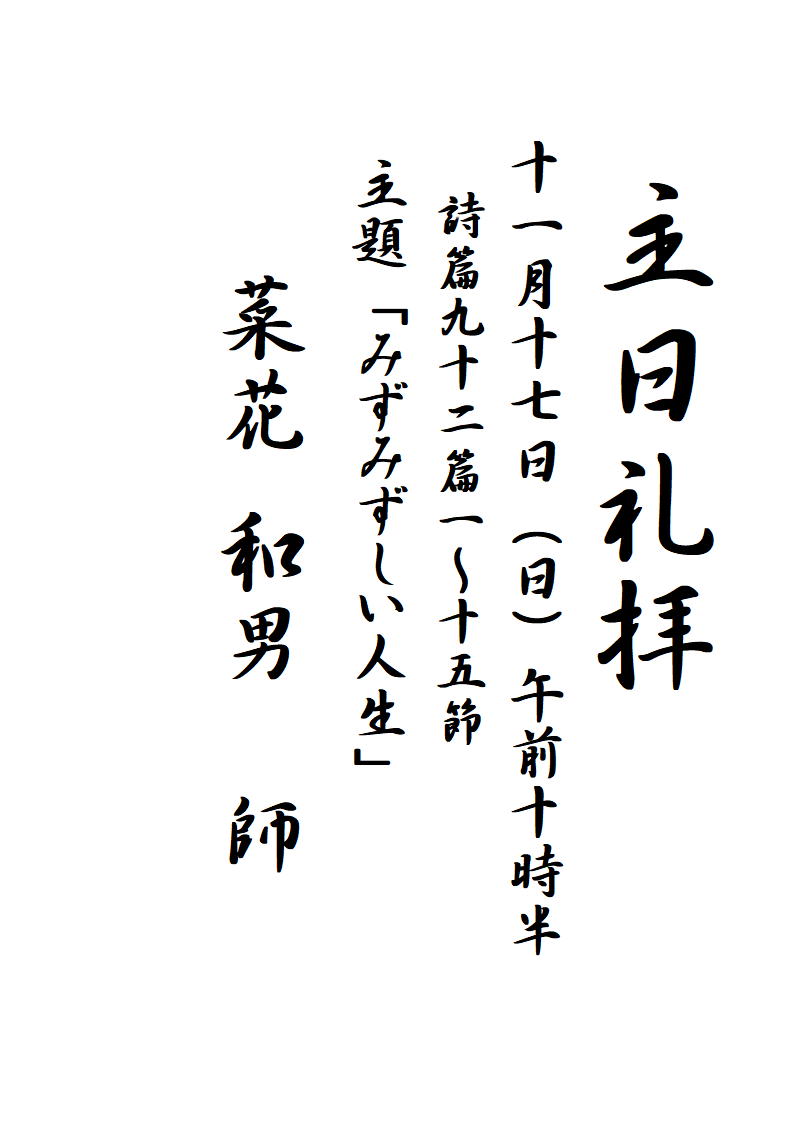 主日礼拝
十一月十七日（日）午前十時半
詩篇九十二篇一～十五節
主題「みずみずしい人生」
菜花　和男　師